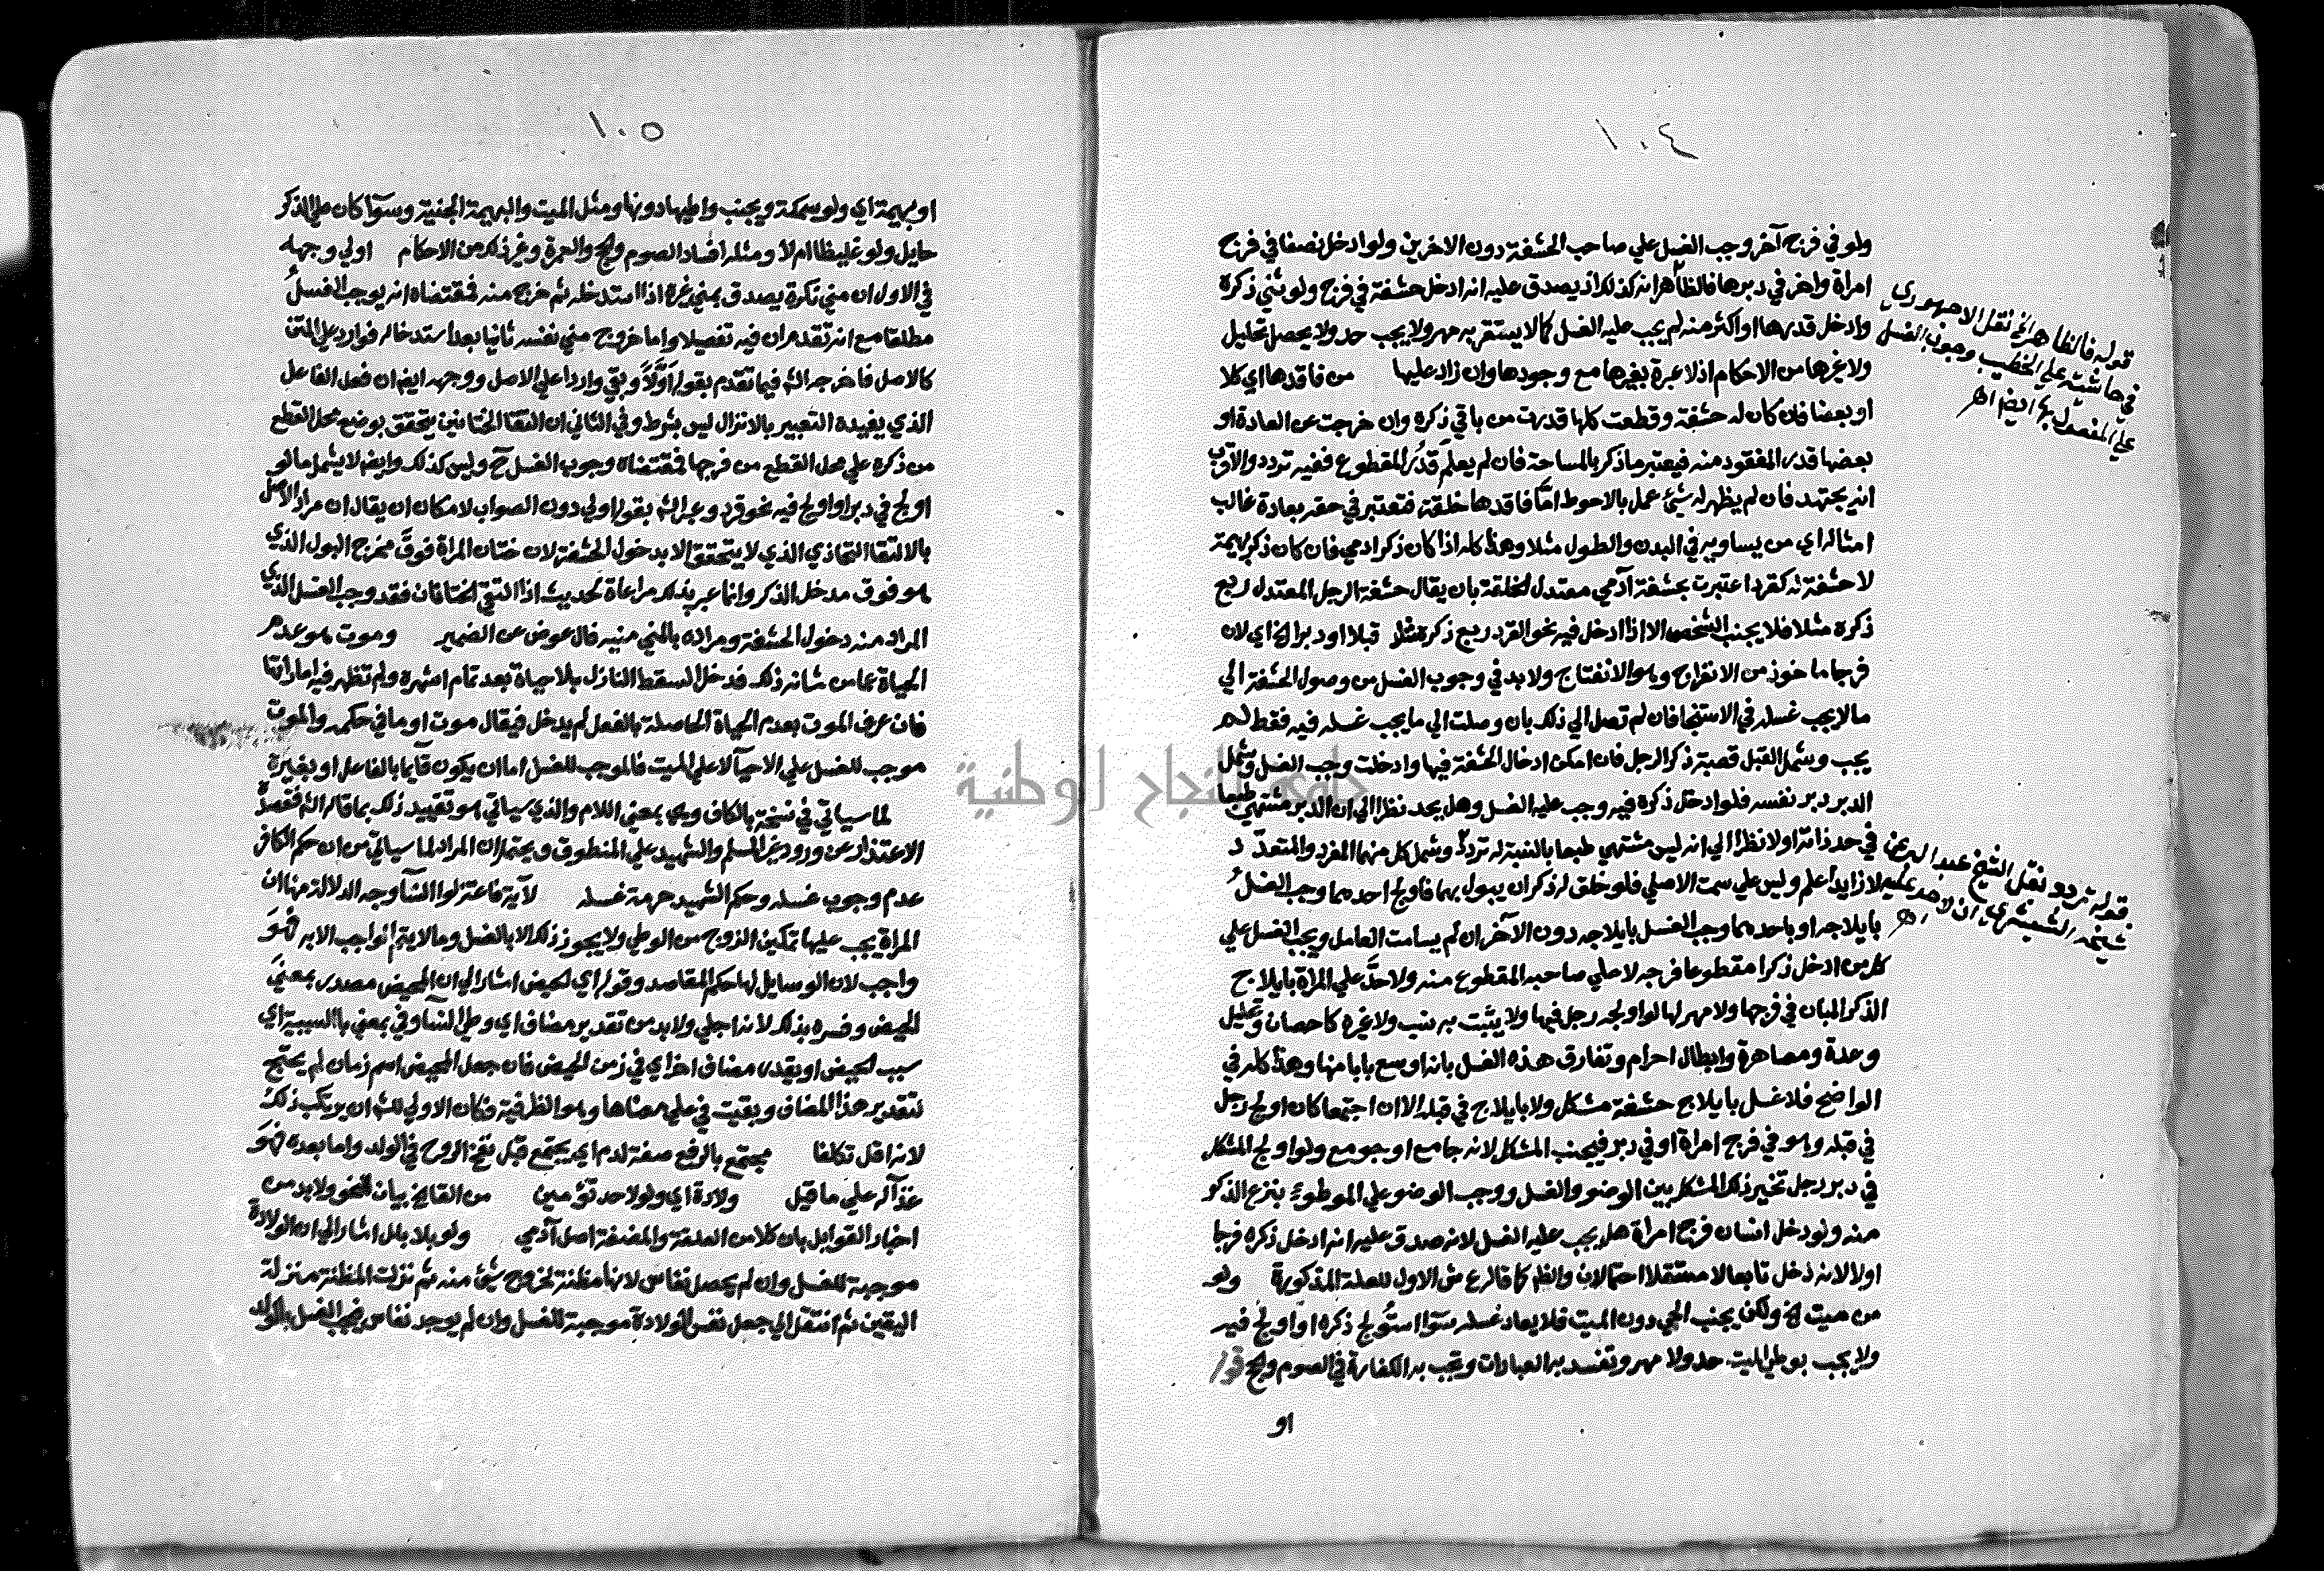 ١٠٤
ولو في فرج آخر وجب الغسل علي صاحب الحشفة دون الاخرين ولو ادخل نصفا في فرج
امراة واخر في دبرها فالظاهر انه كذلك اذ يصدق عليه انه ادخل حشفة في فرج ولو ثني ذكره
وادخل قدرها او اكثر منه لم يجب عليه الغسل كما لا يستقر به مهر ولا يجب حد ولا يحصل تحليل
ولا غيرها من الاحكام اذ لا عبرة بغيرها مع وجودها وان زاد عليها من فاقدها اي كلا
او بعضا فان كان له حشفة وقطعت كلها قدرت من باقي ذكره وان خرجت عن العادة او
بعضها قدر المفقود منه فيعتبر ما ذكر بالمساحة فان لم يعلم قدر المقطوع ففيه تردد والاقرب
انه يجتهد فان لم يظهر له شيئ عمل بالاحوط اما فاقدها خلقة فتعتبر في حقه بعادة غالب
امثاله اي من يساويه في البدن والطول مثلا وهذا كله اذا كان ذكر ادمي فان كان ذكر بهيمة
لا حشفة له كقرد اعتبرت بحشفة آدمي معتدل الخلقة بان يقال حشفة الرجل المعتدل ربع
ذكره مثلا فلا يجنب الشخص الا اذا ادخل فيه نحو القرد ربع ذكره مثلا قبلا او دبرا الخ اي لان
فرجا ماخوذ من الانفراج وهو الانفتاح ولا بد في وجوب الغسل من وصول الحشفة الي
مالا يجب غسله في الاستنجا فان لم تصل الي ذلك بان وصلت الي ما يجب غسله فيه فقط لم
يجب وشمل القبل قصبة ذكر الرجل فان امكن ادخال الحشفة فيها وادخلت وجب الغسل وشمل
الدبر دبر نفسه فلو ادخل ذكره فيه وجب عليه الغسل وهل يحد نظرا الي ان الدبر مشتهي طبعا
في حد ذاته او لا نظرا الي انه ليس مشتهي طبعا بالنسبة له تردد وشمل كل منهما المفرد والمتعدد
لا زايدا علم وليس علي سمت الاصلي فلو خلق له ذكران يبول بهما فاولج احدهما وجب الغسل
بايلاجه او باحدهما وجب الغسل بايلاجه دون الآخر ان لم يسامت العامل ويجب الغسل علي
كل من ادخل ذكرا مقطوعا فرجه لا علي صاحبه المقطوع منه ولا حد علي المراة بايلاج
الذكر المبان في فرجها ولا مهر لها لو اولجه رجل فيها ولا يثبت به نسب ولا غيره كاحصان وتحليل
وعدة ومصاهرة وابطال احرام وتفارق هذه الغسل بانه اوسع بابا منها وهذا كله في
الواضح فلا غسل بايلاج حشفة مشكل ولا بايلاج في قبله الا ان اجتمعا كان اولج رجل
في قبله وهو في فرج امراة او في دبر فيجنب المشكل لانه جامع او جومع ولو اولج المشكل
في دبر رجل تخير ذلك المشكل بين الوضو والغسل ووجب الوضو علي الموطوء بنزع الذكر
منه ولو دخل انسان فرج امراة هل يجب عليه الغسل لانه صدق عليه انه ادخل ذكره فرجا
او لا لانه دخل تابعا لا مستقلا احتمالان والظم كما قاله ع ش الاول للعلة المذكورة ولو
من ميت الخ ولكن يجنب الحي دون الميت فلا يعاد غسله سوآ استولج ذكره او اولج فيه
ولا يجب بوطي الميت حد ولا مهر وتفسد به العبادات وتجب به الكفارة في الصوم والحج قوله
او
قوله فالظاهر الخ نقل الاجهوري
في حاشيته علي الخطيب وجوب الغسل
علي المفعول بها ايضا اهر
قوله تردد نقل الشيخ عبد البر عن
شيخه الشبشيري ان لا حد عليه
اهر
١٠٥
او بهيمة اي ولو سمكة ويجنب واطيها دونها ومثل الميت والبهيمة الجنية وسوآ كان علي الذكر
حايل ولو غليظا ام لا ومثله افساد الصوم والحج والعمرة وغير ذلك من الاحكام اولي وجهه
في الاول ان مني نكرة يصدق بمني غيره اذا استدخله ثم خرج منه فمقتضاه انه يوجب الغسل
مطلقا مع انه تقدم ان فيه تفصيلا واما خروج مني نفسه ثانيا بعد استدخاله فوارد علي المتن
كالاصل فاخرجه الش فيما تقدم بقوله اولا وبقي واردا علي الاصل ووجهه ايضا ان فعل الفاعل
الذي يفيده التعبير بالانزال ليس بشرط وفي الثاني ان التقا الختانين يتحقق بوضع محل القطع
من ذكره علي محل القطع من فرجها فمقتضاه وجوب الغسل ح وليس كذلك وايضا لا يشمل ما لو
اولج في دبر او اولج فيه نحو قرد وعبر الش بقوله اولي دون الصواب لامكان ان يقال ان مراد الاصل
بالالتقا التحاذي الذي لا يتحقق الا بدخول الحشفة لان ختان المراة فوق مخرج البول الذي
هو فوق مدخل الذكر وانما عبر بذلك مراعاة لحديث اذا التقي الختانان فقد وجب الغسل الذي
المراد منه دخول الحشفة ومراده بالمني منيه فال عوض عن الضمير وموت هو عدم
الحياة عما من شانه ذلك فدخل السقط النازل بلا حياة بعد تمام اشهره ولم تظهر فيه اماراتها
فان عرف الموت بعدم الحياة الحاصلة بالفعل لم يدخل فيقال موت او ما في حكمه والموت
موجب للغسل علي الاحيآ لا علي الميت فالموجب للغسل اما ان يكون قآيما بالفاعل او بغيره
لما سياتي في نسخة بالكاف وهي بمعني اللام والذي سياتي هو تقييد ذلك بما قاله الش فقصده
الاعتذار عن ورود غير المسلم والشهيد علي المنطوق ويحتمل ان المراد لما سياتي من ان حكم الكافر
عدم وجوب غسله وحكم الشهيد حرمة غسله لآية فاعتزلوا النسآ وجه الدلالة منها ان
المراة يجب عليها تمكين الزوج من الوطي ولا يجوز ذلك الا بالغسل وما لا يتم الواجب الا به فهو
واجب لان الوسايل لها حكم المقاصد وقوله اي الحيض اشار الي ان المحيض مصدر بمعني
الحيض وفسره بذلك لانه اجلي ولا بد من تقدير مضاف اي وطي النسآ وفي بمعني با السببية اي
بسبب الحيض او يقدر مضاف اخر اي في زمن الحيض فان جعل المحيض اسم زمان لم يحتج
لتقدير هذا المضاف وبقيت في علي معناها وهو الظرفية فكان الاولي للش ان يرتكب ذلك
لانه اقل تكلفا مجتمع بالرفع صفة لدم اي يجتمع قبل نفخ الروح في الولد واما بعده فهو
غذآ له علي ما قيل ولادة اي ولو لاحد توٴمين من القابل بيان للنحو ولا بد من
اخبار القوابل بان كلا من العلقة والمضغة اصل آدمي ولو بلا بلل اشار الي ان الولادة
موجبة للغسل وان لم يحصل نفاس لانها مظنة لخروج شيئ منه ثم نزلت المظنة منزلة
اليقين ثم انتقل الي جعل نفس الولادة موجبة للغسل وان لم يوجد نفاس فيجب الغسل بالولد
جامعة النجاح الوطنية